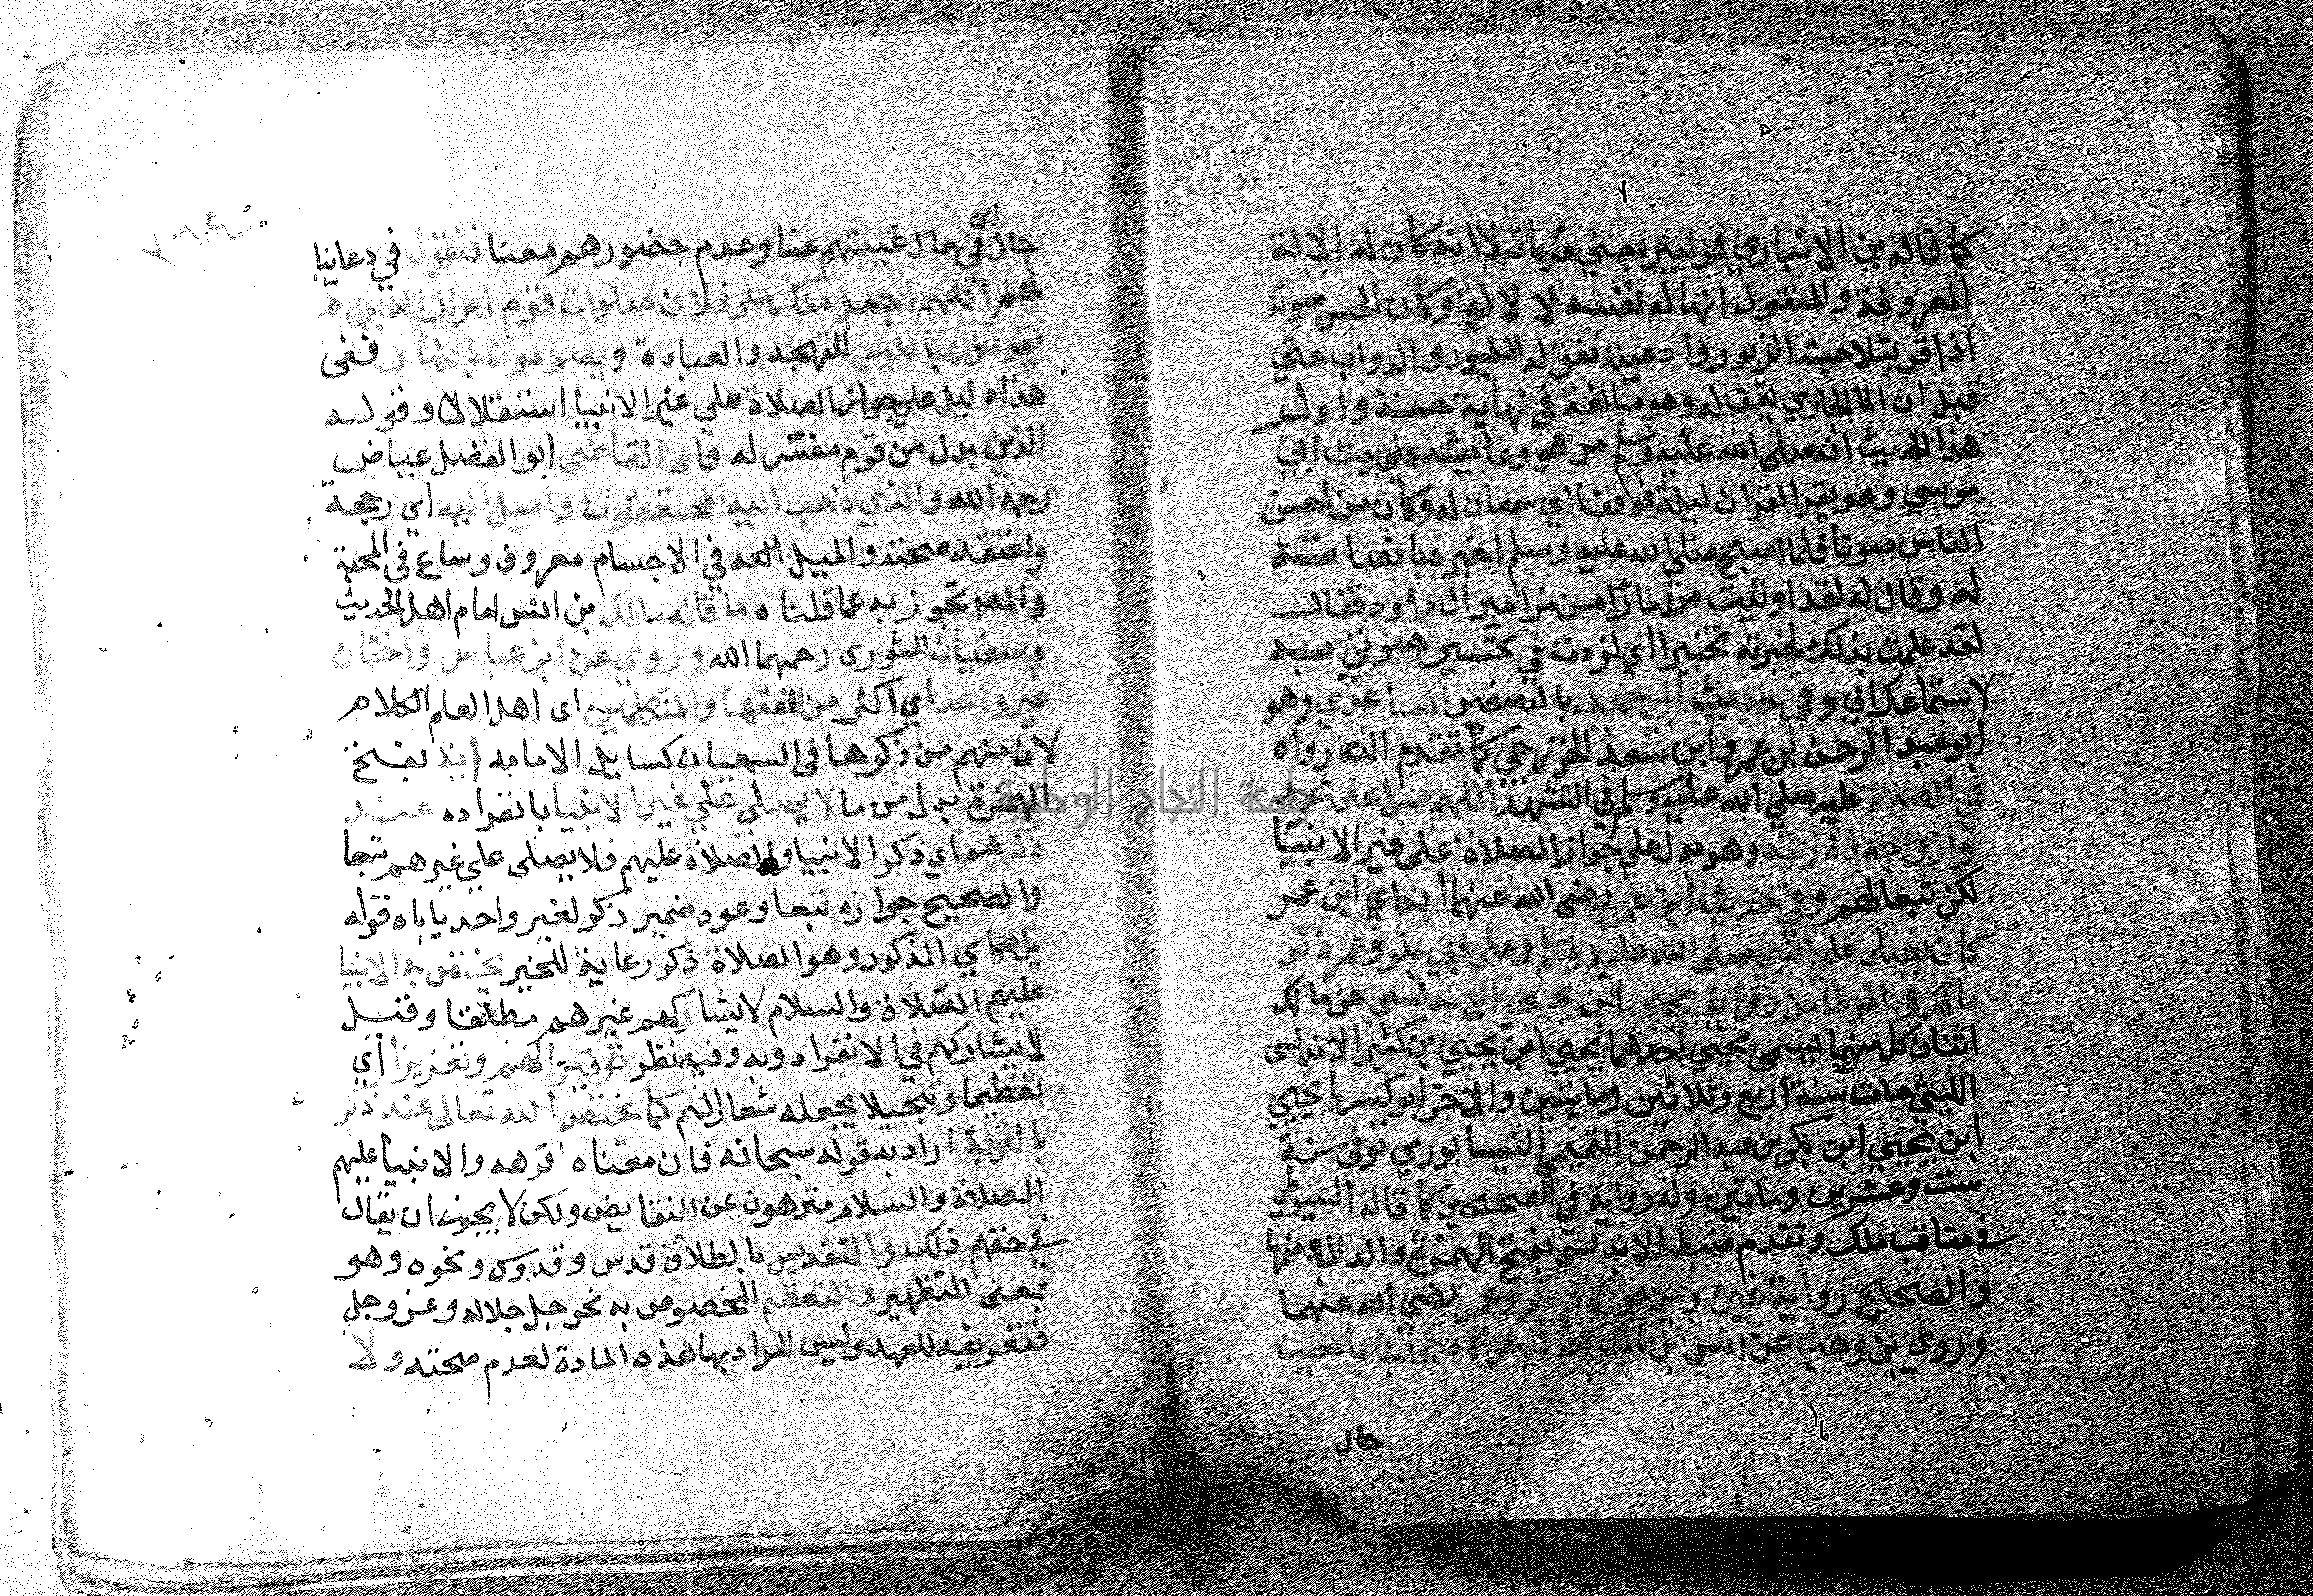 كما قاله بن الانباري فمزامير بمعني قراءاته لا انه كان له الالة
المعروفة والمنقول انها له لنفسه لا لالة وكان لحسن صوته
اذا قر بتلاحينه الزبور وادعيته تقف له الطيور والدواب حتي
قيل ان الما الجاري يقف له وهو مبالغة في نهاية حسنة واول
هذا الحديث انه صلي الله عليه وسلم مر هو وعايشه علي بيت ابي
موسي وهو يقرا القران ليلة فوقفا اي سمعان له وكان من احسن
الناس صوتا فلما اصبح صلي الله عليه وسلم اخبره بانصاته
له وقال له لقد اوتيت مزمارًا من مزامير ال داود فقال
لقد علمت بذلك لحبرته تحبيرا اي لزدت في تحسين صوتي به
لاستماعك اليّ وفي حديث ابي حميد بالتصغير الساعدي وهو
ابو عبد الرحمن بن عمرو ابن سعد الخزرجي كما تقدم الذي رواه
في الصلاة عليه صلي الله عليه وسلم في التشهد اللهم صل علي محمد
وازواجه وذريته وهو يدل علي جواز الصلاة علي غير الانبيا
لكن تبعا لهم وفي حديث ابن عمر رضي الله عنهما انه اي ابن عمر
كان يصلي علي النبي صلي الله عليه وسلم وعلي ابي بكر وعمر ذكره
مالك في الموطا من رواية يحيي ابن يحيي الاندلسي عن مالك
اثنان كل منهما يسمي يحيي احدهما يحيي ابن يحيي بن كثير الاندلسي
الليثي مات سنة اربع وثلاثين ومايتين والاخر ابو يحيي
ابن يحيي ابن بكر بن عبد الرحمن التميمي النيسابوري توفي سنة
ست وعشرين وماتين وله رواية في الصحيحين كما قاله السيوطي
في مناقب ملك وتقدم ضبط الاندلسي بفتح الهمزة والدال وضمها
والصحيح رواية غيره ويدعو لابي بكر وعمر رضي الله عنهما
وروي بن وهب عن انس بن مالك كنا ندعو لاصحابنا بالغيب
حال
حال اي في حال غيبتهم عنا وعدم حضورهم معنا فنقول في دعائنا
لهم اللهم اجعل منك علي فلان صلوات قوم ابرار الذين
يقومون بالليل للتهجد والعبادة ويصومون بالنهار ففي
هذا دليل علي جواز الصلاة علي غير الانبيا استقلالا وقوله
الذين بدل من قوم مفسر له قال القاضي ابو الفضل عياض
رحمة الله والذي ذهب اليه المحققون واميل اليه اي رجحه
واعتقد صحته والميل الحه في الاجسام معروف وشاع في المحبة
والمص تجوز به عما قلناه ما قاله مالك بن انس امام اهل الحديث
وسفيان الثوري رحمهما الله وروي عن ابن عباس واختان
غير واحد اي اكثر من الفقها والمتكلمين اي اهل العلم الكلام
لان منهم من ذكرها في السمعيات كسايل الامامه انه بفتح
الهمزة بدل من ما لا يصلي علي غير الانبيا بانفراده عند
ذكرهم اي ذكر الانبيا والصلاة عليهم فلا يصلي علي غيرهم تبعا
والصحيح جوازه تبعا وعود ضمير ذكر لغير واحد ياباه قوله
بل هو اي المذكور وهو الصلاة ذكر رعاية للخبر يختص به الانبيا
عليهم الصلاة والسلام لا يشاركهم غيرهم مطلقا وقيل
لا يشاركهم في الانفراد وبه وفيه نظر توقيرا لهم وتعزيزا اي
تعظيما وتبجيلا بجعله شعارا لهم كما يختص الله تعالي عند ذكر
بالتنزيه اراد به قوله سبحانه فان معناه انزهه والانبيا عليهم
الصلاة والسلام منزهون عن النقايص ولكن لا يجوز ان يقال
في حقهم ذلك والتقديس بالطلاق قدس وقدوس ونحوه وهو
بمعني التطهير والتعظيم المخصوص به نحو جل جلاله وعز وجل
فتعريفه للعهد وليس المراد بها هذه المادة لعدم صحته ولا
جامعة النجاح الوطنية